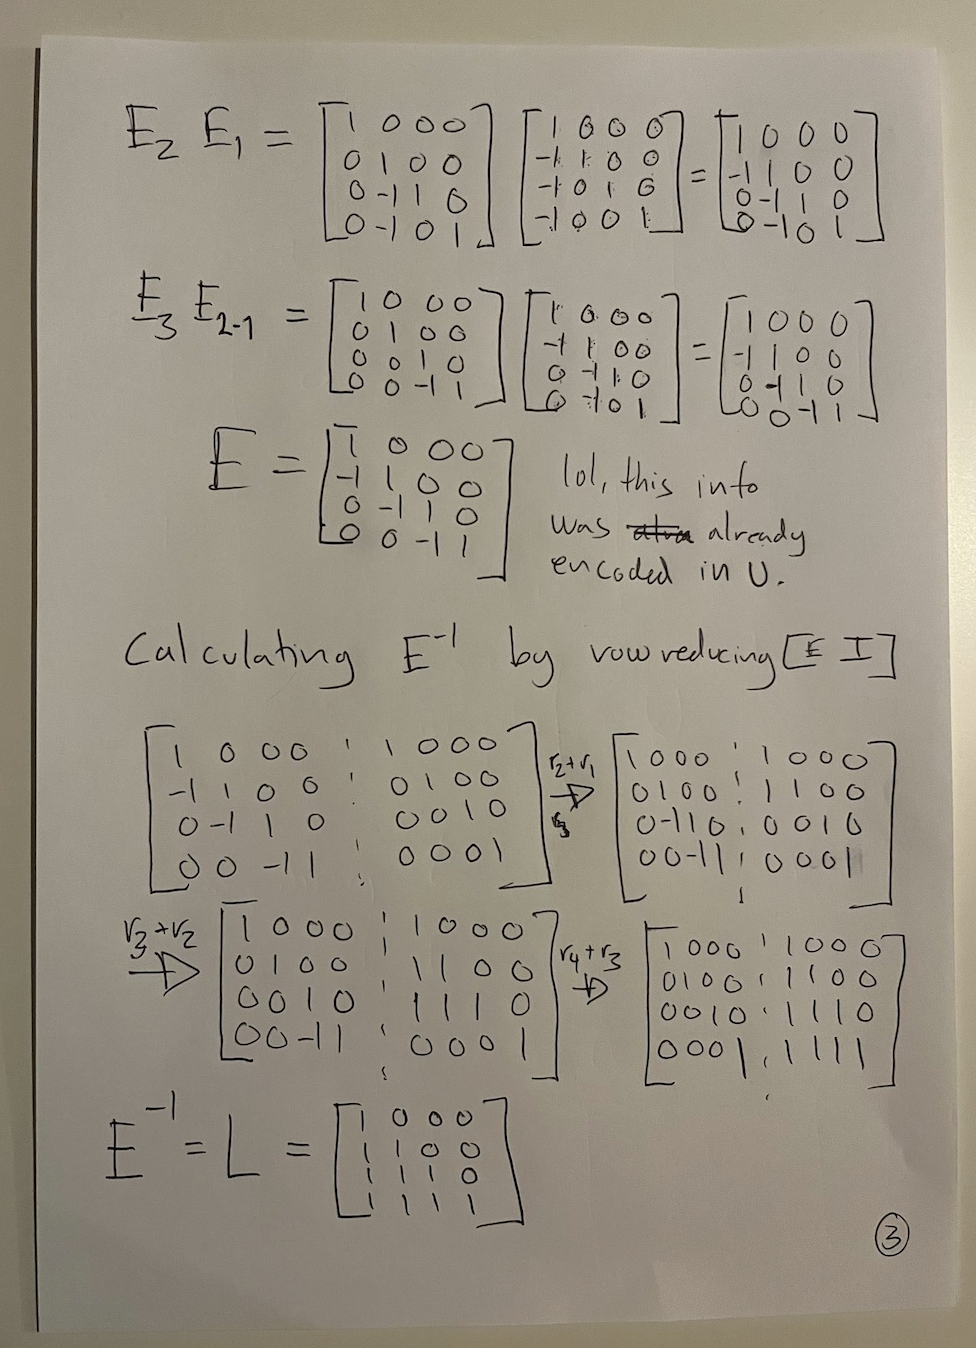 E₂ E₁ = [1 0 0 0] [1 0 0 0] = [1 0 0 0]
[0 1 0 0] [-1 1 0 0] [-1 1 0 0]
[0 -1 1 0] [-1 0 1 0] [0 -1 1 0]
[0 -1 0 1] [-1 0 0 1] [0 -1 0 1]
E₃ E₂₋₁ = [1 0 0 0] [1 0 0 0] = [1 0 0 0]
[0 1 0 0] [-1 1 0 0] [-1 1 0 0]
[0 0 1 0] [0 -1 1 0] [0 -1 1 0]
[0 0 -1 1] [0 -1 0 1] [0 0 -1 1]
E = [1 0 0 0]
[-1 1 0 0]
[0 -1 1 0]
[0 0 -1 1]
lol, this info
was already
encoded in U.
Calculating E⁻¹ by row reducing [E I]
[1 0 0 0 ¦ 1 0 0 0] r₂+r₁ → [1 0 0 0 ¦ 1 0 0 0]
[-1 1 0 0 ¦ 0 1 0 0] [0 1 0 0 ¦ 1 1 0 0]
[0 -1 1 0 ¦ 0 0 1 0] [0 -1 1 0 ¦ 0 0 1 0]
[0 0 -1 1 ¦ 0 0 0 1] [0 0 -1 1 ¦ 0 0 0 1]
r₃+r₂ → [1 0 0 0 ¦ 1 0 0 0] r₄+r₃ → [1 0 0 0 ¦ 1 0 0 0]
[0 1 0 0 ¦ 1 1 0 0] [0 1 0 0 ¦ 1 1 0 0]
[0 0 1 0 ¦ 1 1 1 0] [0 0 1 0 ¦ 1 1 1 0]
[0 0 -1 1 ¦ 0 0 0 1] [0 0 0 1 ¦ 1 1 1 1]
E⁻¹ = L = [1 0 0 0]
[1 1 0 0]
[1 1 1 0]
[1 1 1 1]
③